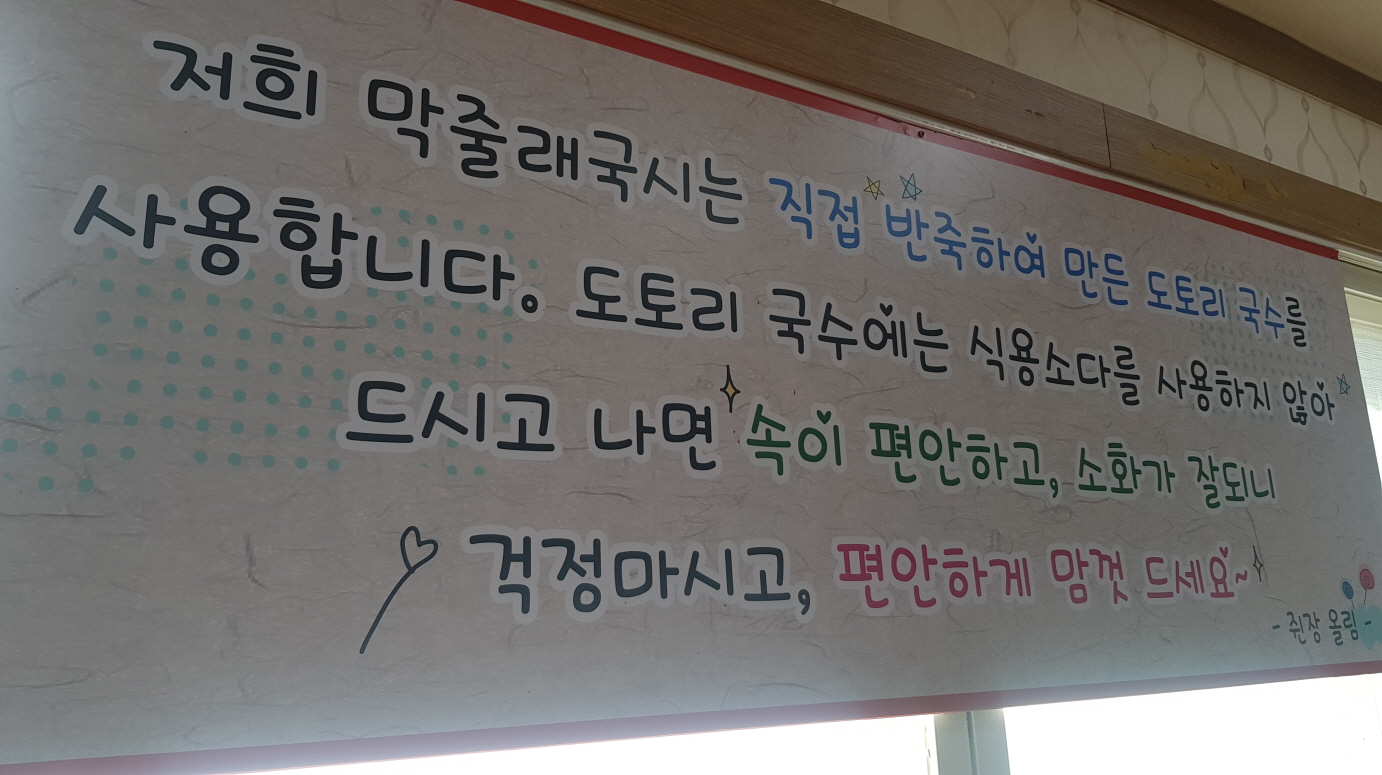 저희 막줄래국시는 직접 반죽하여 만든 도토리 국수를
사용합니다. 도토리 국수에는 식용소다를 사용하지 않아
드시고 나면 속이 편안하고, 소화가 잘되니
걱정마시고, 편안하게 맘껏 드세요~
- 쥔장 올림 -